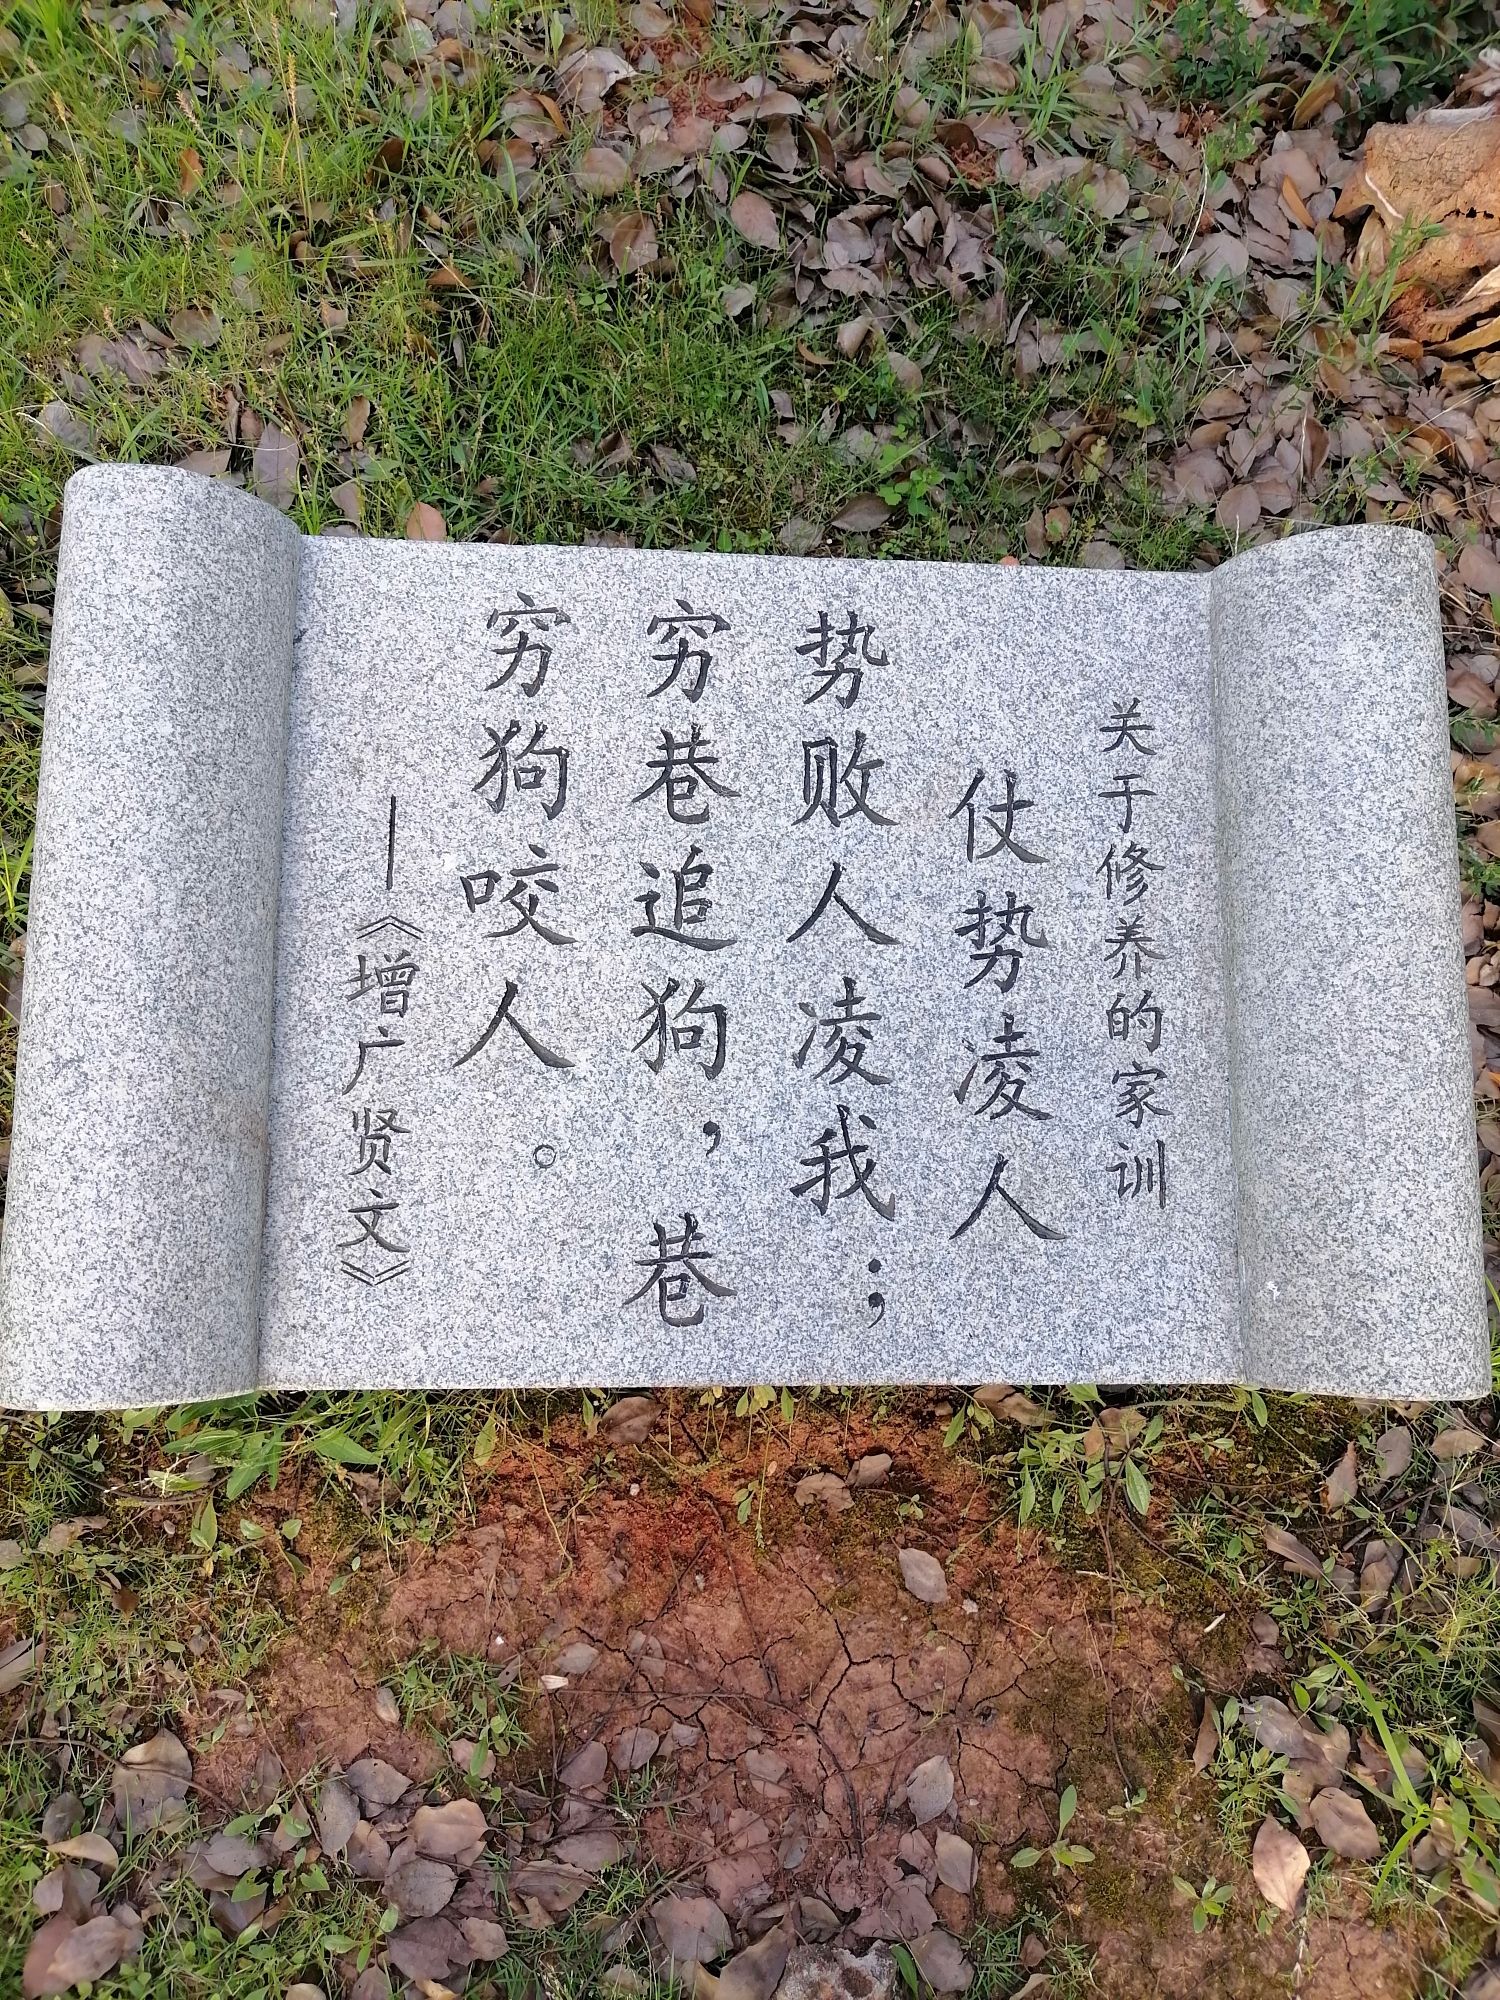 关于修养的家训
仗势凌人
势败人凌我；
穷巷追狗，巷
穷狗咬人。
——《增广贤文》